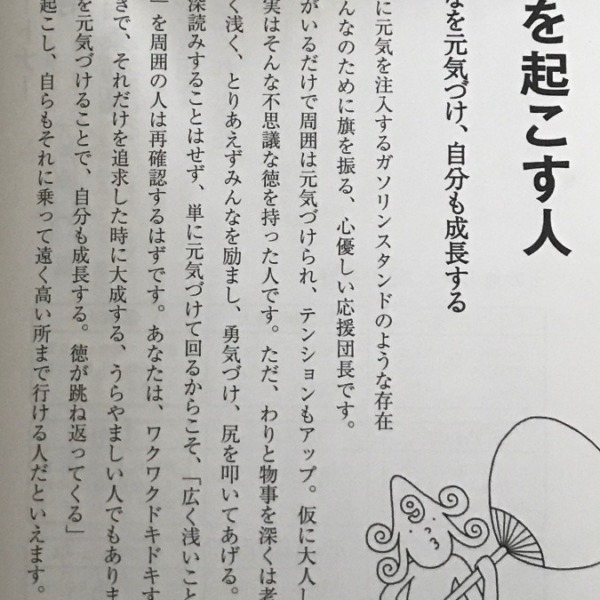 を起こす人
なを元気づけ、自分も成長する
に元気を注入するガソリンスタンドのような存在
んなのために旗を振る、心優しい応援団長です。
がいるだけで周囲は元気づけられ、テンションもアップ。仮に大人し
実はそんな不思議な徳を持った人です。ただ、わりと物事を深くは考
く浅く、とりあえずみんなを励まし、勇気づけ、尻を叩いてあげる。
深読みすることはせず、単に元気づけて回るからこそ、「広く浅いこと
」を周囲の人は再確認するはずです。あなたは、ワクワクドキドキす
きで、それだけを追求した時に大成する、うらやましい人でもありま
を元気づけることで、自分も成長する。徳が跳ね返ってくる」
起こし、自らもそれに乗って遠く高い所まで行ける人だといえます。